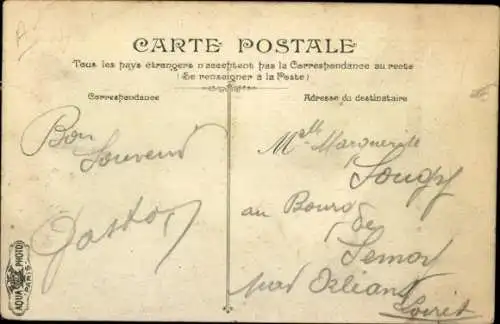 A
CARTE POSTALE
Tous les pays étrangers n'acceptent pas la Correspondance au recto
(Se renseigner à la Poste)
Correspondance
Adresse du destinataire
Bon
Souvenir
Gaston
Melle Marguerite
Sougy
au Bourg de
Semoy
par Orléans
Loiret
AQUA PHOTO
PARIS